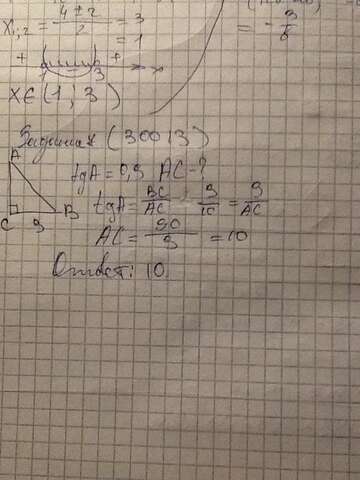 x₁,₂ = (4 ± 2)/2 = 3
= 1
+ 1 3 + x
x ∈ (1; 3)
= - 3/6
Задача (30013)
A
C 9 B
tgA = 0,9 AC - ?
tgA = BC/AC 9/10 = 9/AC
AC = 90/9 = 10
Ответ: 10.